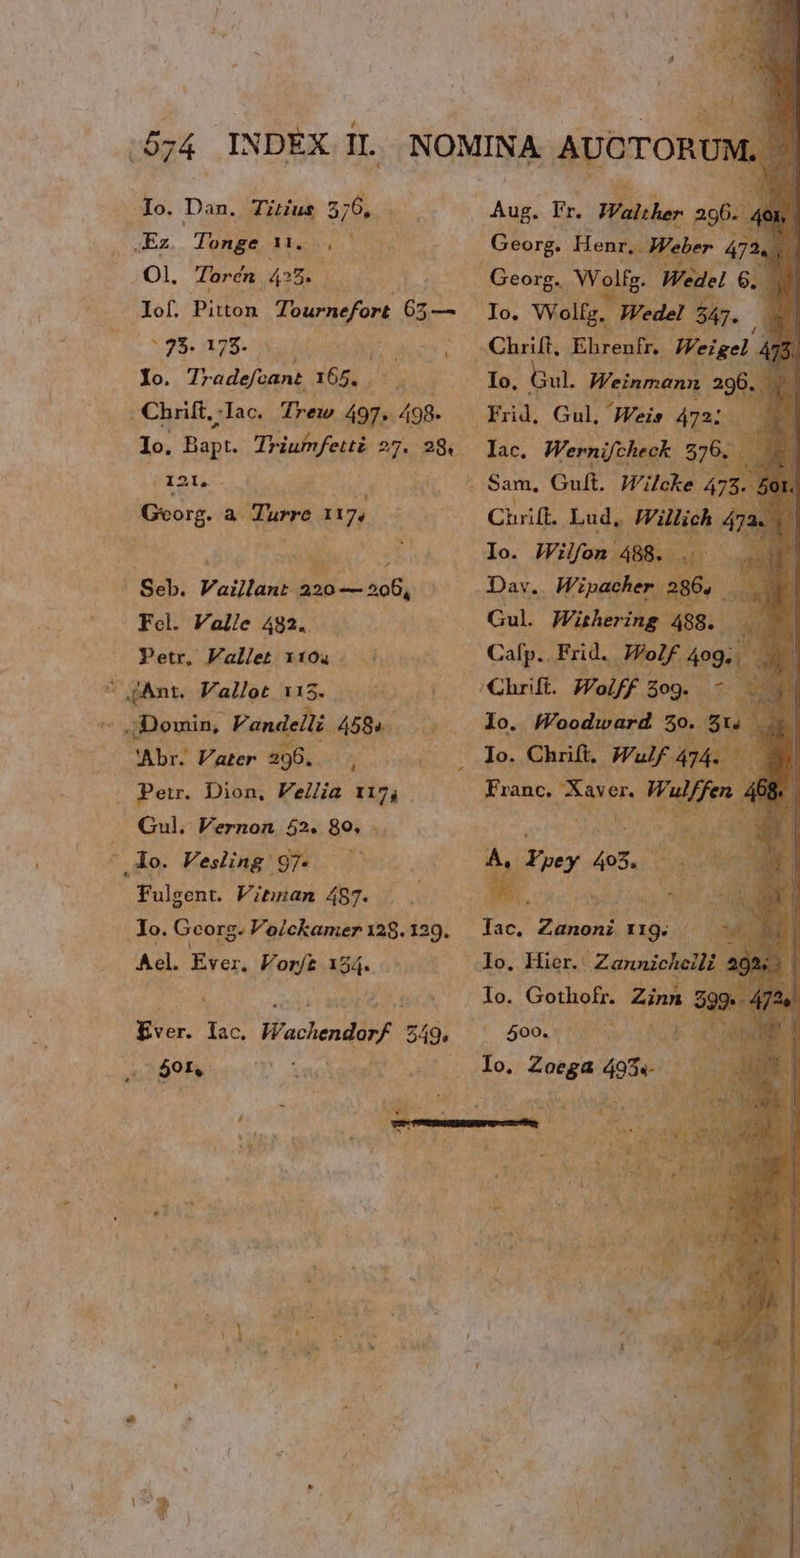 574 INDEX II. NOMINA AUCTORUM.
Io. Dan. Titius 376.
Ez. Tonge 11.
Ol. Torén 423.
Iof. Pitton Tournefort 63—
73. 173.
Io. Tradefcant 165.
Chrift. Iac. Trew 497. 498.
Io. Bapt. Triumfetti 27. 28.
121.
Georg. a Turre 117.
Seb. Vaillant 220—206.
Fel. Valle 482.
Petr. Vallet 110.
Ant. Vallot 113.
Domin. Vandelli 458.
Abr. Vater 296.
Petr. Dion. Vellia 117.
Gul. Vernon 52. 80.
Io. Vesling 97.
Fulgent. Vitman 487.
Io. Georg. Volckamer 128. 129.
Ael. Ever. Vorft 134.
Ever. Iac. Wachendorf 349.
501.
Aug. Fr. Walther 296. 401.
Georg. Henr. Weber 472.
Georg. Wolfg. Wedel 6.
Io. Wolfg. Wedel 347.
Chrift. Ehrenfr. Weigel 473.
Io. Gul. Weinmann 296.
Frid. Gul. Weis 472.
Iac. Wernifcheck 376.
Sam. Guft. Wilcke 473. 501.
Chrift. Lud. Willich 472.
Io. Wilfon 488.
Dav. Wipacher 286.
Gul. Withering 488.
Cafp. Frid. Wolf 409.
Chrift. Wolff 309.
Io. Woodward 30. 31.
Io. Chrift. Wulf 474.
Franc. Xaver. Wulffen 468.
A. Ypey 403.
Iac. Zanoni 119.
Io. Hier. Zannichelli 292.
Io. Gothofr. Zinn 399. 472.
500.
Io. Zoega 493.